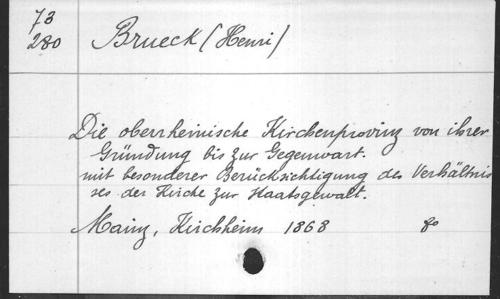 73
280
Brueck (Henri)
Die oberrheinische Kirchenprovinz von ihrer
Gründung bis zur Gegenwart.
mit besonderer Berücksichtigung des Verhältnis
ses der Kirche zur Staatsgewalt.
Mainz, Kirchheim 1868 8o